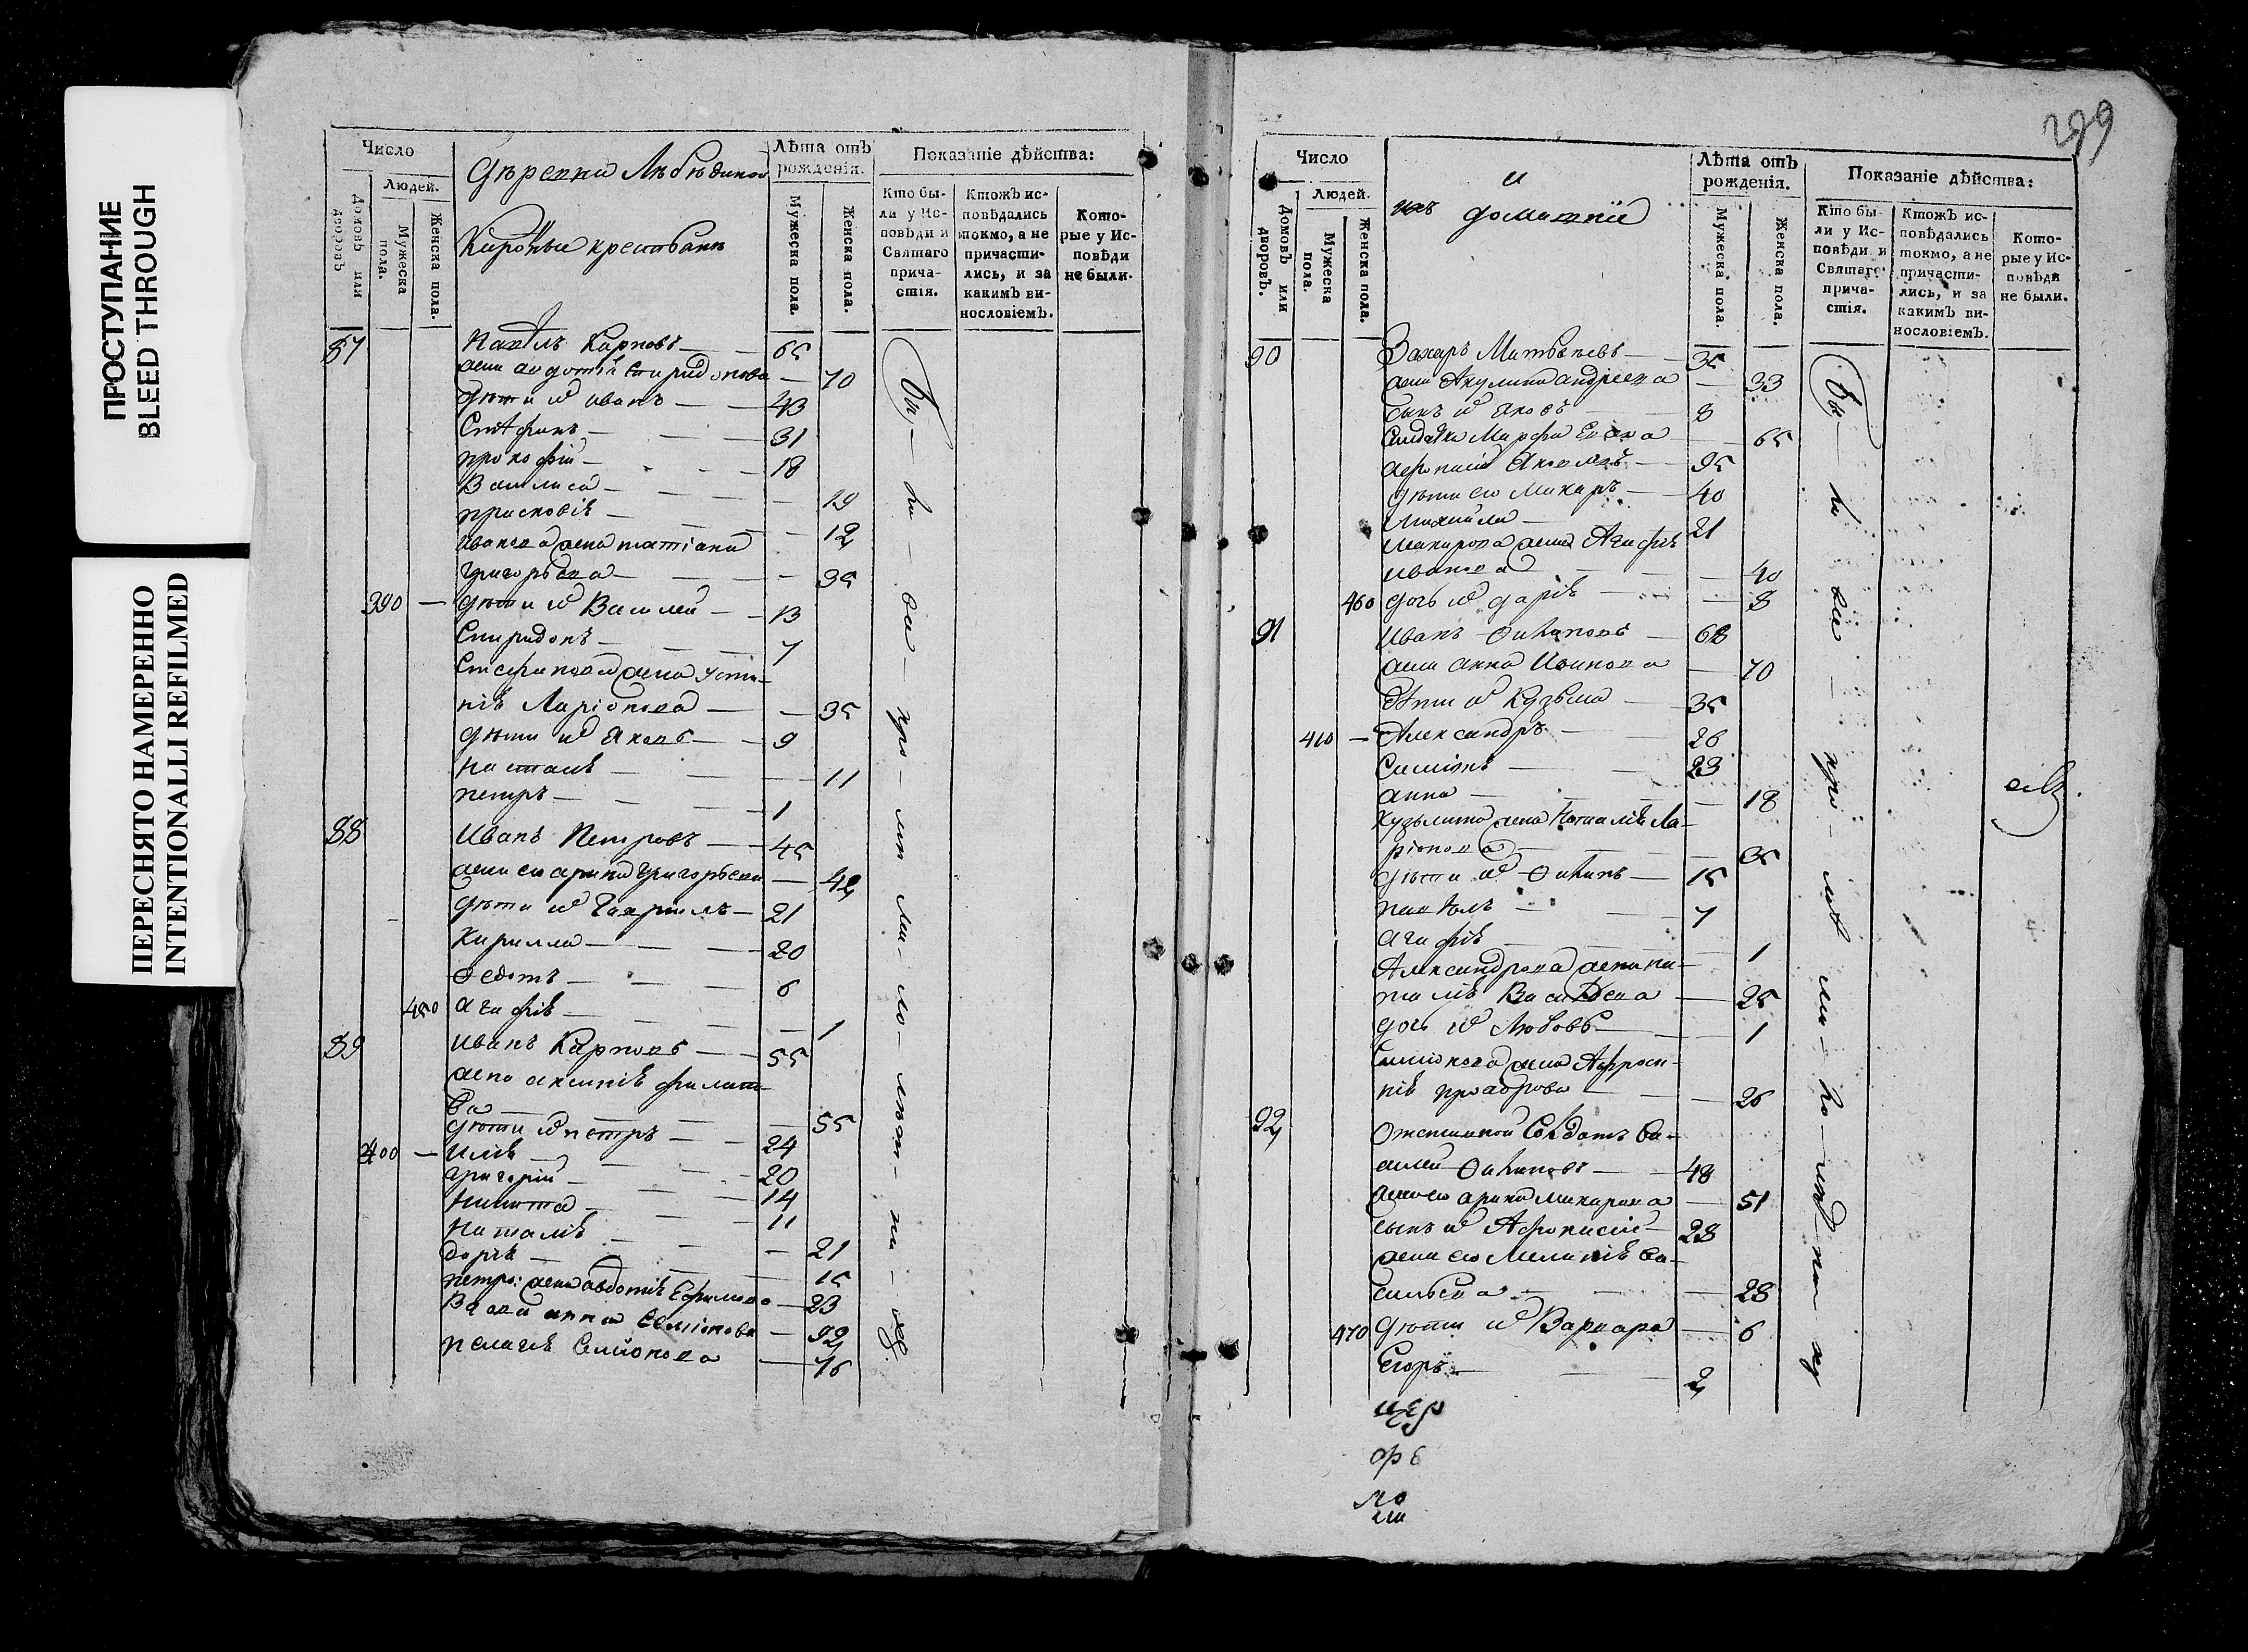 ПРОСТУПАНИЕ
BLEED THROUGH
ПЕРЕСНЯТО НАМЕРЕННО
INTENTIONALLI REFILMED
Число
Людей.
Домовъ или дворовъ
Мужеска пола.
Женска пола.
Деревни
крестьяне
Лѣта отъ рожденія.
Мужеска пола.
Женска пола.
Показаніе дѣйства:
Кто были у Исповѣди и Святаго причастія.
Ктожъ исповѣдались токмо, а не причастились, и за какимъ винословіемъ.
Которые у Исповѣди не были.
87 Павелъ Карповъ — 65
жена авдотіѣ Спиридонова — 70
дѣти иѵ иванъ — 43
Стефанъ — 31
прокофій — 18
Василиса — 19
прасковіѣ — 12
иванова жена татіана
григорьева — 35
390 — дѣти иѵ Василей — 13
Спиридонъ — 7
Стефанова жена усти-
ніѣ Ларіонова — 35
дѣти иѵ Яковъ — 9
наталіѣ — 11
петръ — 1
88 Иванъ Петровъ — 45
жена ево арина григорьева — 42
дѣти иѵ Гаврилъ — 21
Кирилла — 20
Ѳедотъ — 6
450 агафіѣ — 1
89 иванъ Карповъ — 55
жена аксиніѣ филато-
ва — 55
дѣти иѵ петръ — 24
400 — иліѣ — 20
григорій — 14
никита — 11
наталіѣ — 21
дарьѣ — 15
петро: жена авдотіѣ Ефимова — 23
Вдова анна Семіонова — 92
пелагеѣ Семіонова — 76
299
Число
Людей.
Домовъ или дворовъ.
Мужеска пола.
Женска пола.
и
ихъ домашніе
Лѣта отъ рожденія.
Мужеска пола.
Женска пола.
Показаніе дѣйства:
Кто были у Исповѣди и Святаго причастія.
Ктожъ исповѣдались токмо, а не причастились, и за какимъ винословіемъ.
Которые у Исповѣди не были.
90 Захаръ Матвѣевъ — 35
жена Акулина андреева — 33
сынъ иѵ яковъ — 8
Солдатка Марфа — 65
афонасій Яковлевъ — 95
дѣти ево Макаръ — 40
Михаила — 21
макарова жена Агафіѣ
иванова — 40
460 дочь иѵ даріѣ — 8
91 Иванъ — 68
жена анна Иванова — 70
дѣти иѵ Кузьма — 35
410 — Александръ — 26
Симіонъ — 23
анна — 18
Кузьмина жена Наталіѣ Ла-
ріонова — 35
дѣти иѵ — 15
павелъ — 7
агафіѣ — 1
Александрова жена на-
таліѣ Васильева — 25
дочь иѵ Любовь — 1
Симіонова жена Афроси-
ніѣ — 26
92 Отставной Солдатъ Ва-
силей — 48
жена ево арина макарова — 51
сынъ иѵ Афонасій — 28
жена ево Меланіѣ Ва-
сильева — 28
470 дѣти иѵ Варвара — 6
Егоръ — 2